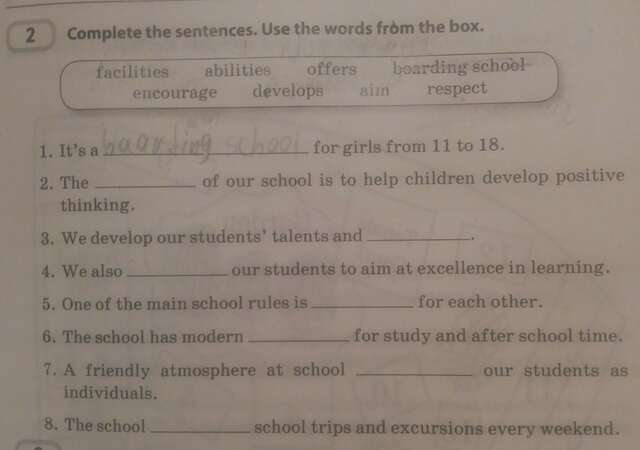 2 Complete the sentences. Use the words from the box.
facilities abilities offers boarding school
encourage develops aim respect
1. It's a boarding school for girls from 11 to 18.
2. The ____________ of our school is to help children develop positive
thinking.
3. We develop our students' talents and ____________.
4. We also ____________ our students to aim at excellence in learning.
5. One of the main school rules is ____________ for each other.
6. The school has modern ____________ for study and after school time.
7. A friendly atmosphere at school ____________ our students as
individuals.
8. The school ____________ school trips and excursions every weekend.